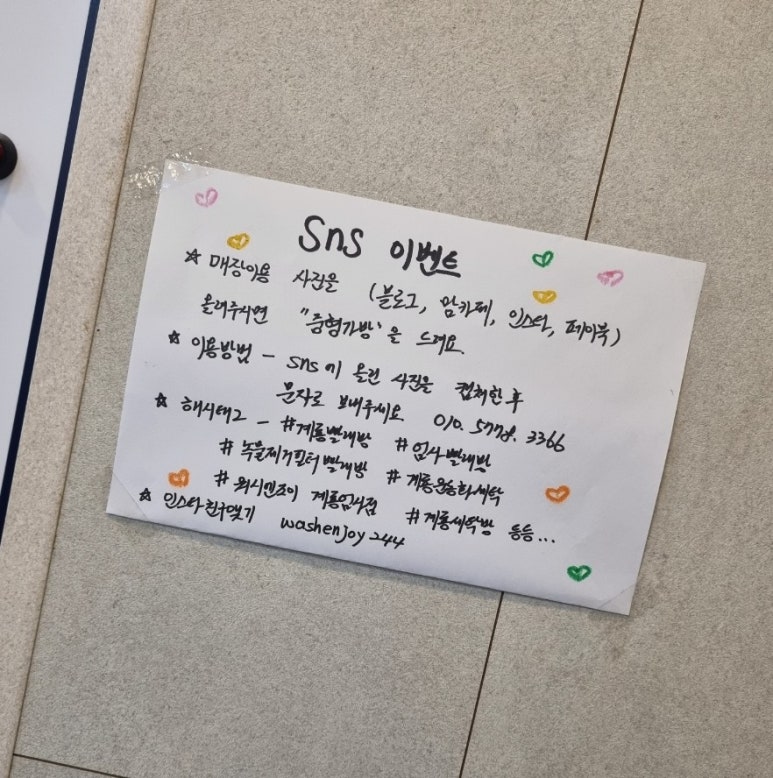 SnS 이벤트
☆ 매장이용 사진을 (블로그, 맘카페, 인스타, 페이북)
올려주시면 "중형가방"을 드려요.
☆ 이용방법 - sns에 올린 사진을 캡처한 후
문자로 보내주세요 010. 5778. 3366
☆ 해시태그 - #계룡빨래방 #엄사빨래방
#녹물제거필터빨래방 #계룡운동화세탁
#워시엔조이 계룡엄사점 #계룡세탁방 등등...
☆ 인스타친구맺기 washenjoy244